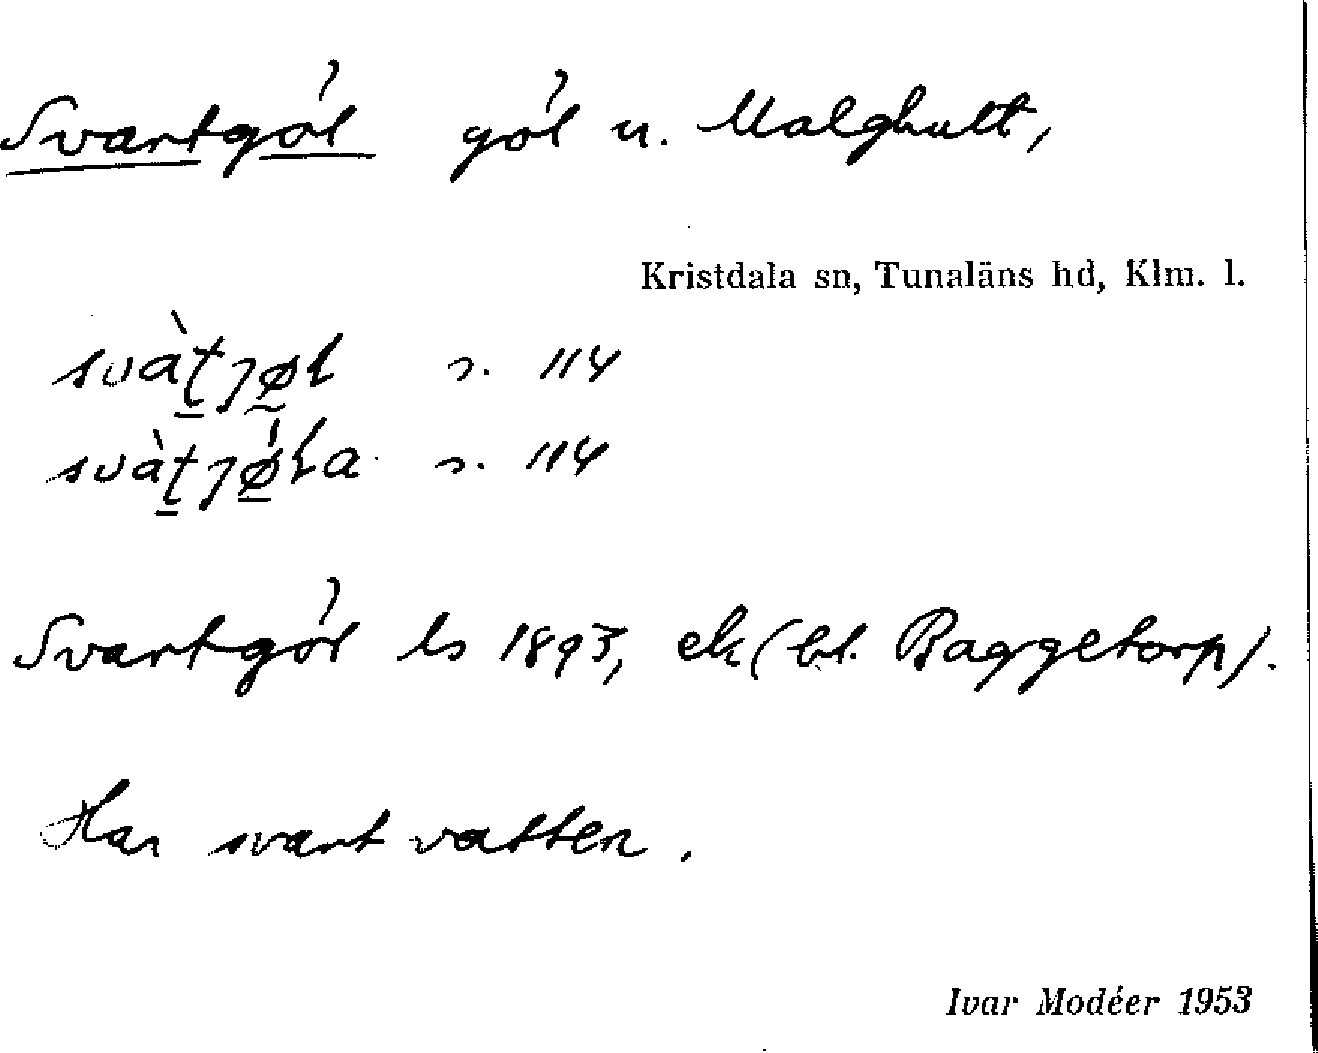 Svartgöl göl u. Malghult,
Kristdala sn, Tunaläns hd, Klm. l.
s. 114
s. 114
Svartgöl ls 1893, ek (bl. Baggetorp).
Har svart vatten.
Ivar Modéer 1953